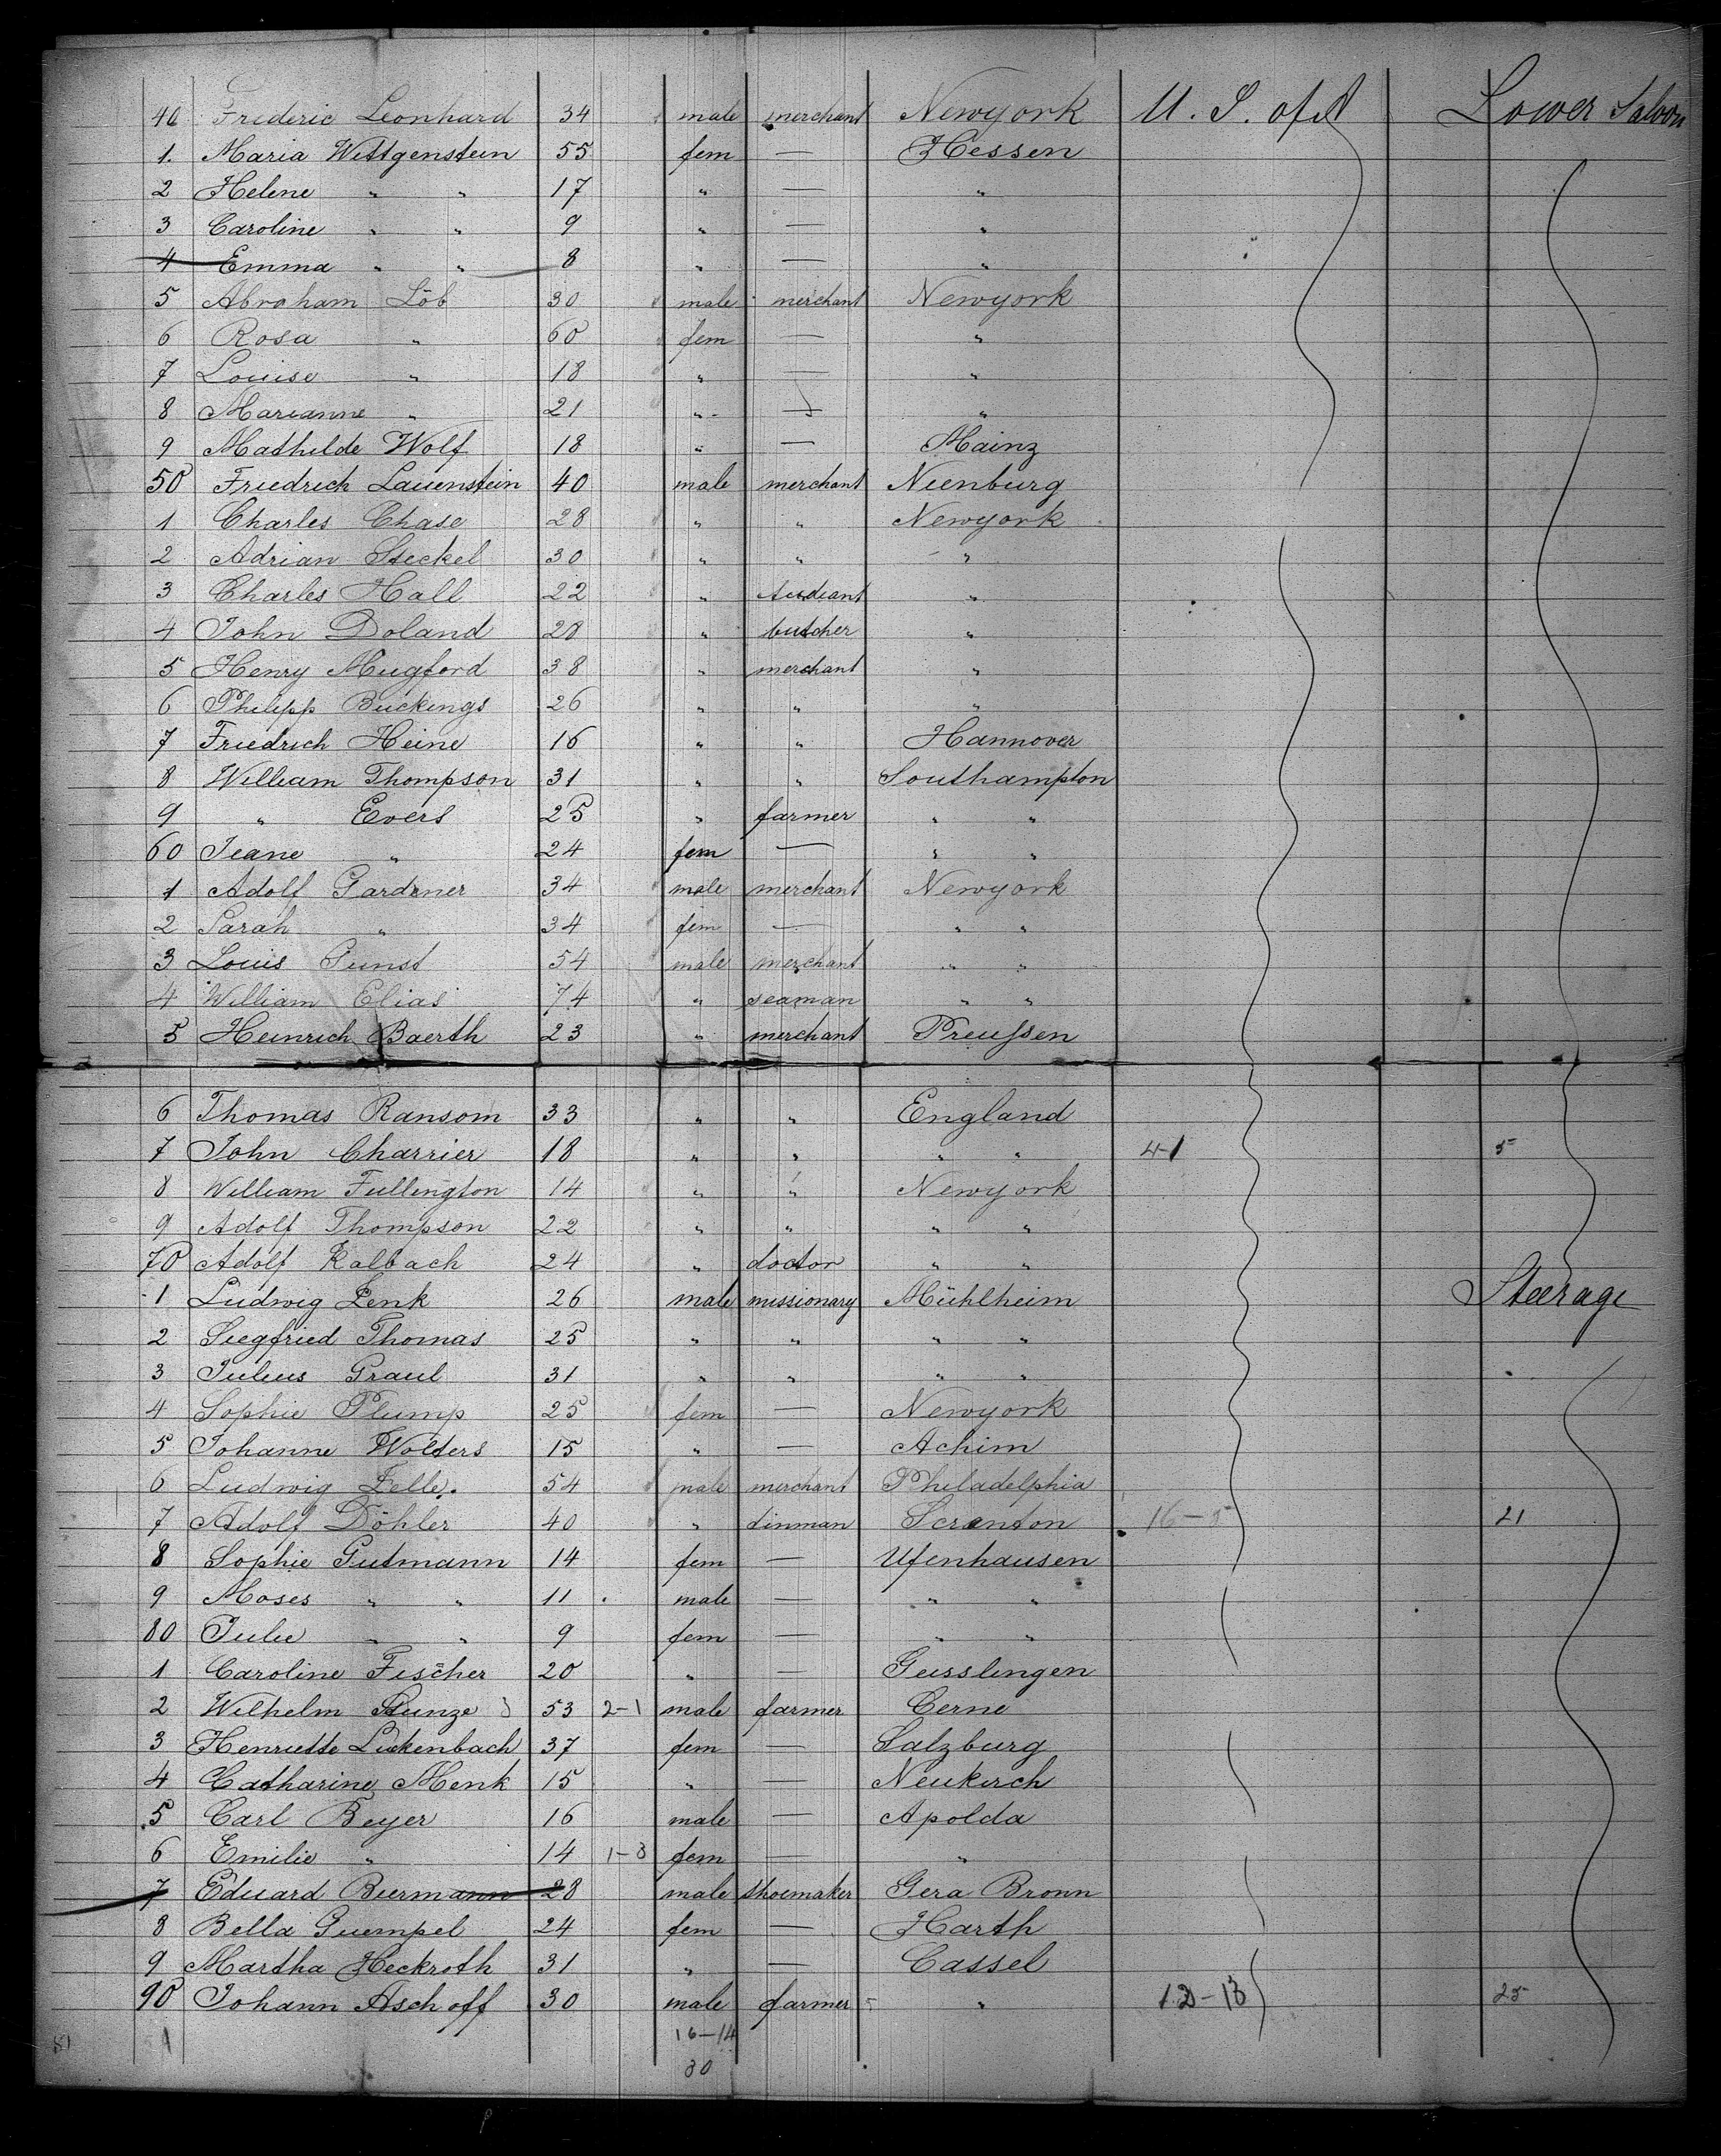 40 Frederic Leonhard 34 male merchant Newyork U. S. of A Lower Saloon
1. Maria Wittgenstein 55 fem — Hessen
2 Helene " " 17 " — "
3 Caroline " " 9 " — "
4 Emma " " 8 " — "
5 Abraham Löb 30 male merchant Newyork
6 Rosa " 60 fem — "
7 Louise " 18 " — "
8 Marianne " 21 " — "
9 Mathilde Wolf 18 " — Mainz
50 Friedrich Lauenstein 40 male merchant Nienburg
1 Charles Chase 28 " " Newyork
2 Adrian Steckel 30 " " "
3 Charles Hall 22 " studiant "
4 John Doland 28 " butcher "
5 Henry Mugford 38 " merchant "
6 Philipp Buckings 26 " " "
7 Friedrich Heine 16 " " Hannover
8 William Thompson 31 " " Southampton
9 " Evers 25 " farmer " "
60 Jeane " 24 fem — " "
1 Adolf Gardener 34 male merchant Newyork
2 Sarah " 34 fem — " "
3 Louis Gunst 54 male merchant " "
4 William Elias 74 " seaman " "
5 Heinrich Baerth 23 " merchant Preussen
6 Thomas Ransom 33 " " England
7 John Charrier 18 " " " " 4-1 5
8 William Fullington 14 " " Newyork
9 Adolf Thompson 22 " " " "
70 Adolf Kalbach 24 " doctor " "
1 Ludwig Zenk 26 male missionary Mühlheim Steerage
2 Siegfried Thomas 25 " " " "
3 Julius Graul 31 " " " "
4 Sophie Plump 25 fem — Newyork
5 Johanne Wolters 15 " — Achim
6 Ludwig Zelle. 54 male merchant Philadelphia
7 Adolf Döhler 40 " tinman Scranton 16-5 21
8 Sophie Gutmann 14 fem — Ufenhausen
9 Moses " " 11 male — " "
80 Julie " " 9 fem — " "
1 Caroline Fischer 20 " — Geisslingen
2 Wilhelm Stunze 53 2-1 male farmer Cerne
3 Henriette Lückenbach 37 fem — Salzburg
4 Catharine Menk 15 " — Neukirch
5 Carl Beyer 16 male — Apolda
6 Emilie " 14 1-3 fem — "
7 Eduard Biermann 28 male shoemaker Gera Bronn
8 Bella Guempel 24 fem — Harth
9 Martha Heckroth 31 " — Cassel
90 Johann Aschoff 30 male farmer " 12-13 25
16-14
30